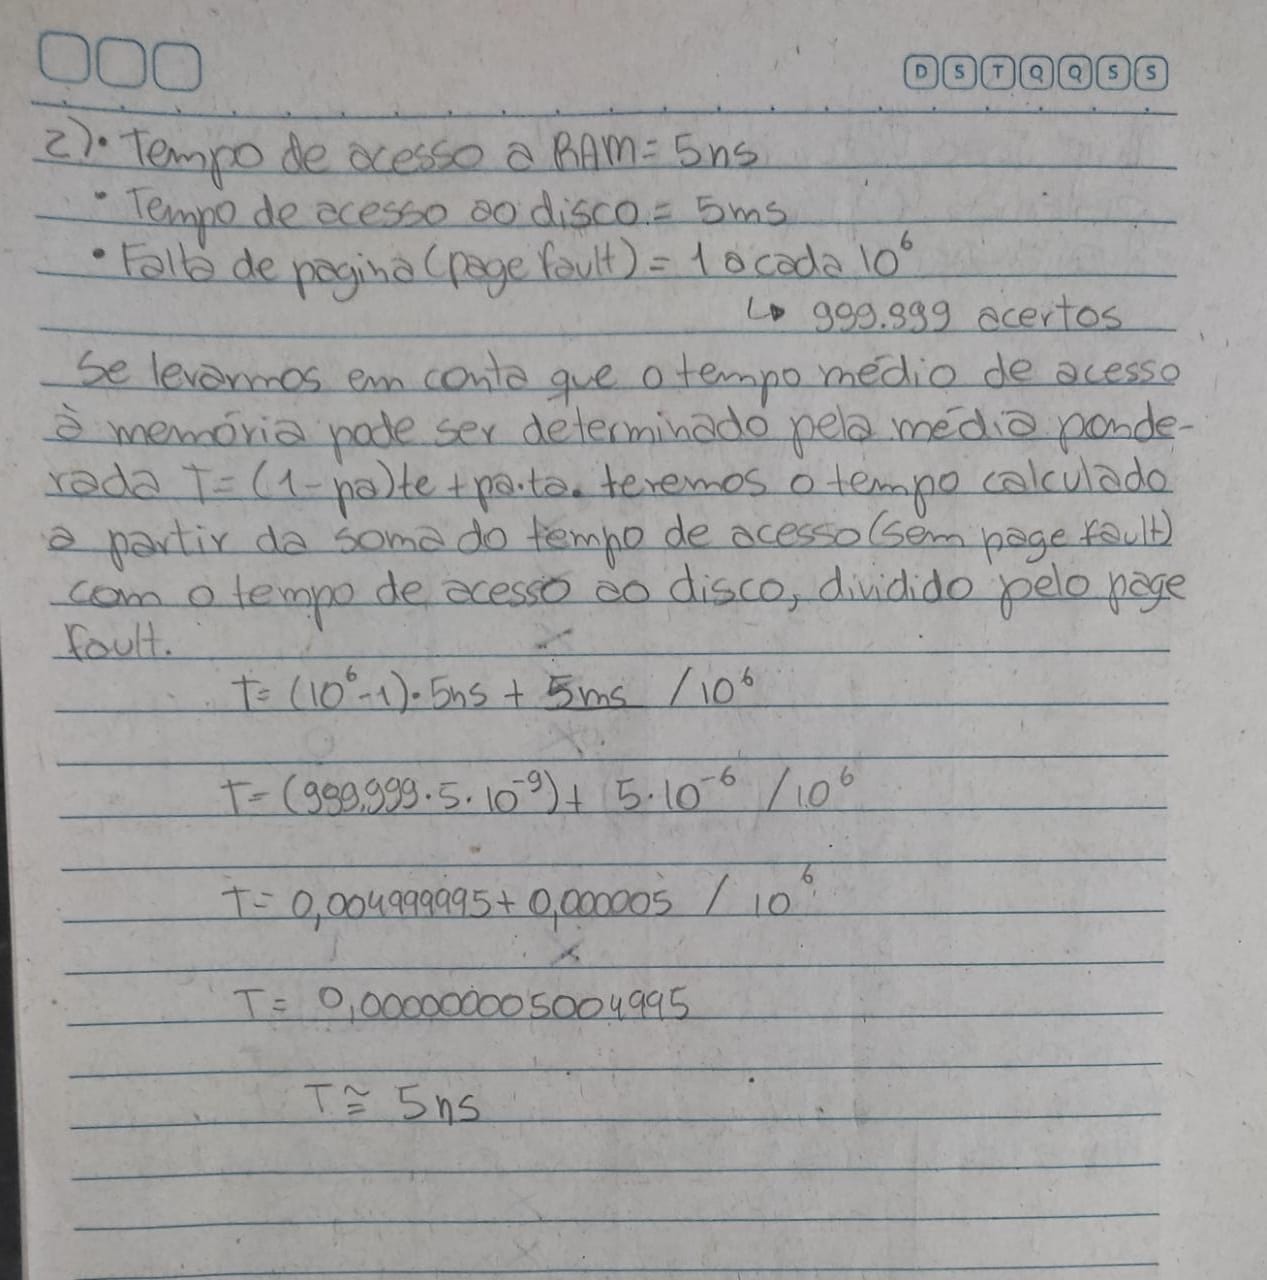 D S T Q Q S S
2)• Tempo de acesso a RAM = 5ns
• Tempo de acesso ao disco = 5ms
• Falta de pagina (page fault) = 1 a cada 10⁶
↳ 999.999 acertos
Se levarmos em conta que o tempo médio de acesso
à memória pode ser determinado pela média ponde-
rada T = (1 - pa)te + pa.ta. teremos o tempo calculado
a partir da soma do tempo de acesso (sem page fault)
com o tempo de acesso ao disco, dividido pelo page
fault.
T = (10⁶-1)•5ns + 5ms /10⁶
T = (999.999.5.10⁻⁹) + 5.10⁻⁶ /10⁶
T = 0,004999995 + 0,000005 / 10⁶
T = 0,000000005004995
T ≅ 5ns